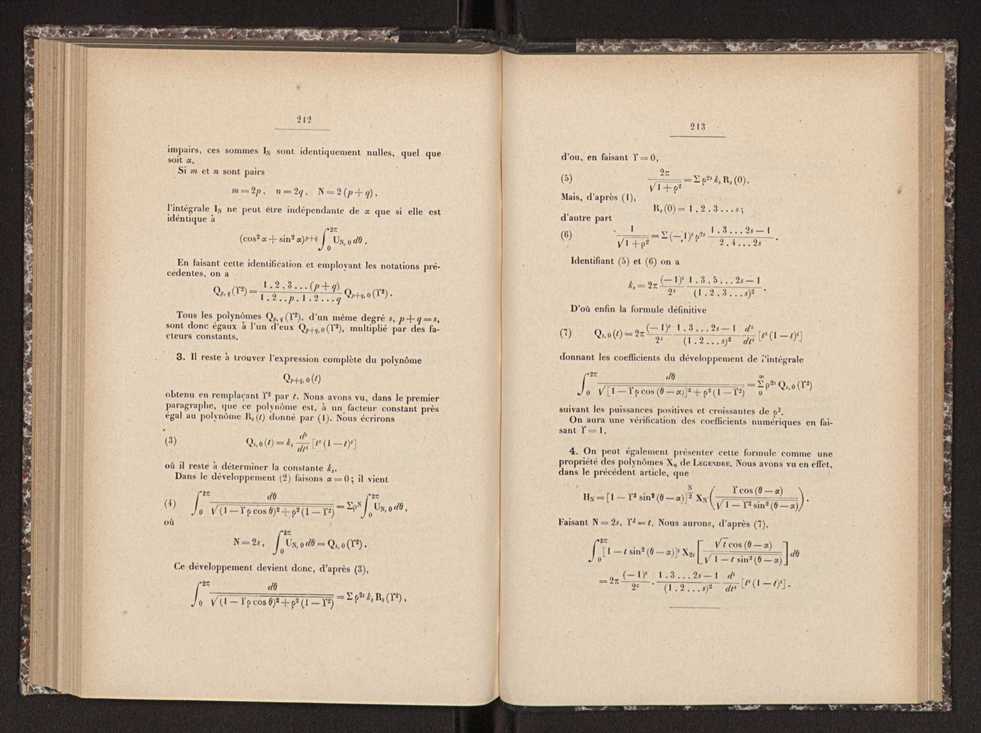 212
impairs, ces sommes I_N sont identiquement nulles, quel que
soit α.
Si m et n sont pairs
m = 2p, n = 2q, N = 2 (p + q),
l'intégrale I_N ne peut être indépendante de α que si elle est
identique à
(cos² α + sin² α)^{p+q} ∫_0^{2π} U_{N, 0} dθ.
En faisant cette identification et employant les notations pré-
cédentes, on a
Q_{p, q} (Υ²) = \frac{1 . 2 . 3 ... (p + q)}{1 . 2 .. p . 1 . 2 ... q} Q_{p+q, 0} (Υ²).
Tous les polynômes Q_{p, q} (Υ²), d'un même degré s, p + q = s,
sont donc égaux à l'un d'eux Q_{p+q, 0} (Υ²), multiplié par des fa-
cteurs constants.
3. Il reste à trouver l'expression complète du polynôme
Q_{p+q, 0} (t)
obtenu en remplaçant Υ² par t. Nous avons vu, dans le premier
paragraphe, que ce polynôme est, à un facteur constant près
égal au polynôme R_s (t) donné par (1). Nous écrirons
(3) Q_{s, 0} (t) = k_s \frac{d^s}{dt^s} [t^s (1 — t)^s]
où il reste à déterminer la constante k_s.
Dans le développement (2) faisons α = 0 ; il vient
(4) ∫_0^{2π} \frac{dθ}{√(1 — Υ ρ cos θ)² + ρ² (1 — Υ²)} = Σρ^N ∫_0^{2π} U_{N, 0} dθ,
où
N = 2s, ∫_0^{2π} U_{N, 0} dθ = Q_{s, 0} (Υ²).
Ce développement devient donc, d'après (3),
∫_0^{2π} \frac{dθ}{√(1 — Υ ρ cos θ)² + ρ² (1 — Υ²)} = Σ ρ^{2s} k_s R_s (Υ²),
213
d'ou, en faisant Υ = 0,
(5) \frac{2π}{√1 + ρ²} = Σ ρ^{2s} k_s R_s (0).
Mais, d'après (1),
R_s (0) = 1 . 2 . 3 ... s ;
d'autre part
(6) \frac{1}{√1 + ρ²} = Σ (—1)^s ρ^{2s} \frac{1 . 3 ... 2s — 1}{2 . 4 ... 2s}.
Identifiant (5) et (6) on a
k_s = 2π \frac{(— 1)^s}{2^s} \frac{1 . 3 . 5 ... 2s — 1}{(1 . 2 . 3 ... s)²}.
D'où enfin la formule définitive
(7) Q_{s, 0} (t) = 2π \frac{(— 1)^s}{2^s} \frac{1 . 3 ... 2s — 1}{(1 . 2 ... s)²} \frac{d^s}{dt^s} [t^s (1 — t)^s]
donnant les coefficients du développement de l'intégrale
∫_0^{2π} \frac{dθ}{√[1 — Υ ρ cos (θ — α)]² + ρ² (1 — Υ²)} = Σ_0^∞ ρ^{2s} Q_{s, 0} (Υ²)
suivant les puissances positives et croissantes de ρ².
On aura une vérification des coefficients numériques en fai-
sant Υ = 1.
4. On peut également présenter cette formule comme une
propriété des polynômes X_n de LEGENDRE. Nous avons vu en effet,
dans le précédent article, que
H_N = [1 — Υ² sin² (θ — α)]^{\frac{N}{2}} X_N (\frac{Υ cos (θ — α)}{√1 — Υ² sin² (θ — α)}).
Faisant N = 2s, Υ² = t. Nous aurons, d'après (7),
∫_0^{2π} [1 — t sin² (θ — α)]^s X_{2s} [\frac{√t cos (θ — α)}{√1 — t sin² (θ — α)}] dθ
= 2π \frac{(— 1)^s}{2^s} . \frac{1 . 3 ... 2s — 1}{(1 . 2 ... s)²} \frac{d^s}{dt^s} [t^s (1 — t)^s].